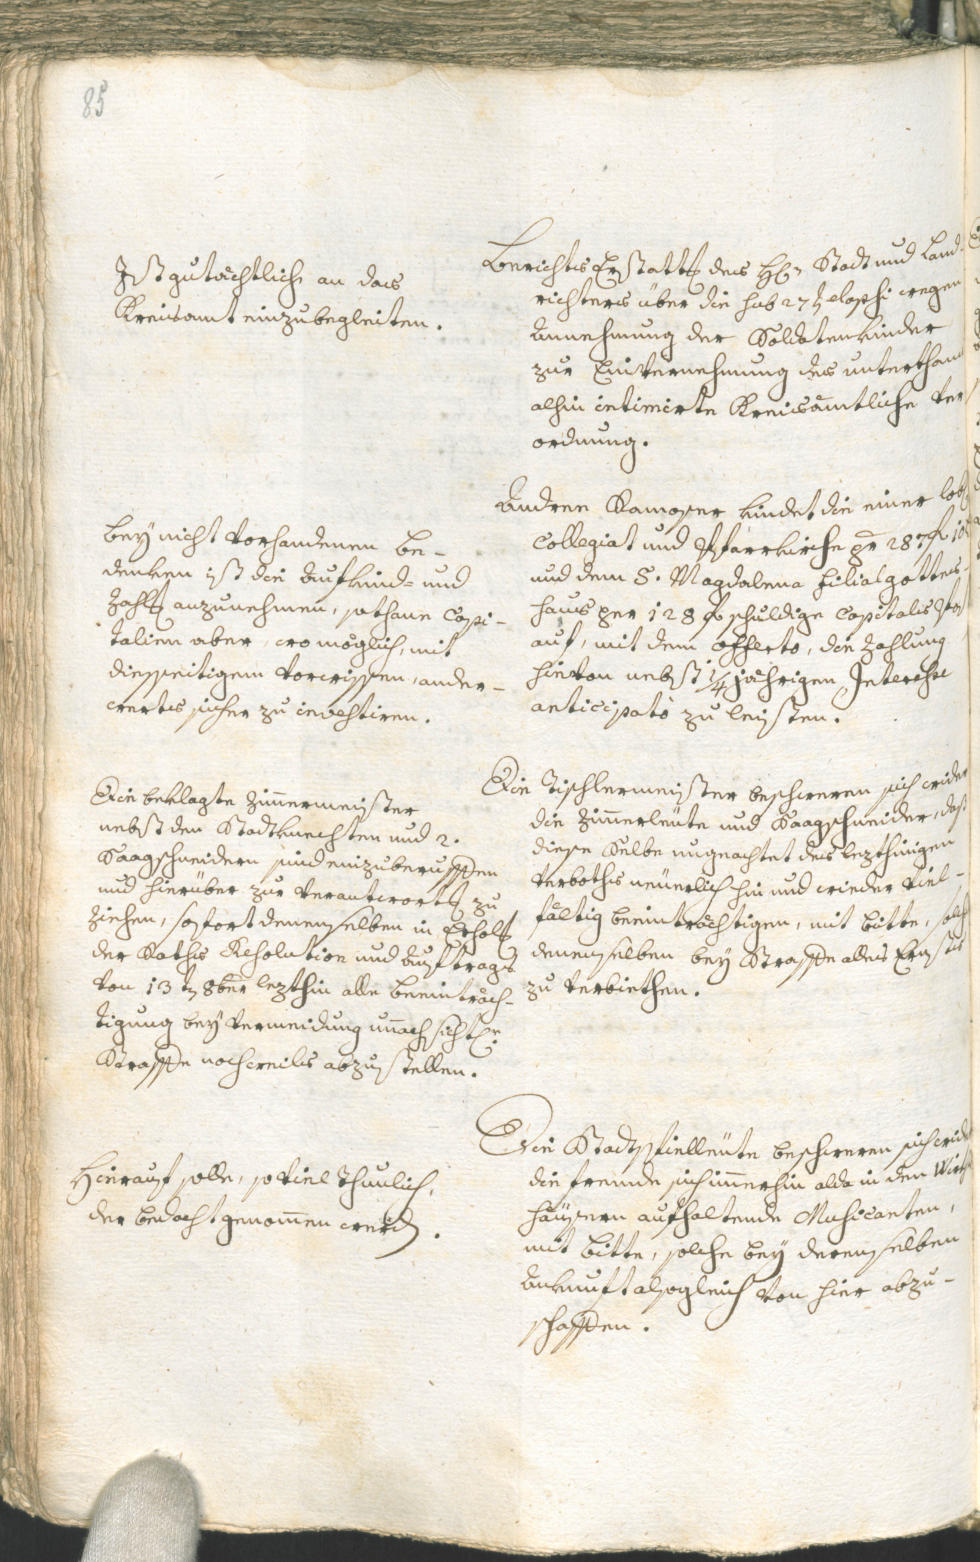 85
Ist gutächtlich an das
Kreisamt einzubegleiten.
Berichts Erstattg des H: Stadt und Land-
richters über die sub 27 elapsi wegen
Annehmung der Soldatenkinder
zur Einvernehmung des unterthans
alhin intimirte Kreisämtliche Ver
ordnung.
Bey nicht vorhandenen Be-
denken ist die Aufkünd- und
Zahlg anzunehmen, sothane Capi-
talien aber, wo möglich, mit
diesseitigem Vorwissen, ander-
wertes sicher zu investiren.
Andree Kamoser kündet die einer lobl
Collegiat und Pfarrkirche pr 287 f
und dem S. Magdalena Filialgottes-
haus per 128 f schuldige Capitalis
auf, mit dem Offerto, die Zahlung
hievon nebst 1/4 jährigen Interesse
anticipato zu leisten.
Die beklagte Zimmermeister
nebst den Stadtknechten und 2.
Saagschneidern sind einzuberuffen
und hierüber zur Verantwortg zu
ziehen, sofort denenselben in Erholg
der Raths Resolution und Auftrags
von 13 t 8ber lezthin alle Beeinträch-
tigung bey Vermeidung unnachsichtl:r
Straffe nochweils abzustellen.
Die Tischlermeister beschweren sich wider
die Zimmerleute und Saagschneider, daß
diese Selbe ungeachtet des lezthinigen
Verbothes neuerlich hin und wieder viel-
fältig beeinträchtigen, mit Bitte, solch
denenselben bey Straffe alles Ernstes
zu verbiethen.
Hierauf solle, so viel thunlich,
der Bedacht genommen werden.
Die Stadtspielleute beschweren sich wider
die fremde sich immerhin alda in den Wirths
häusern aufhaltende Musicanten,
mit Bitte, solche bey derenselben
Ankunft alsogleich von hier abzu-
schaffen.